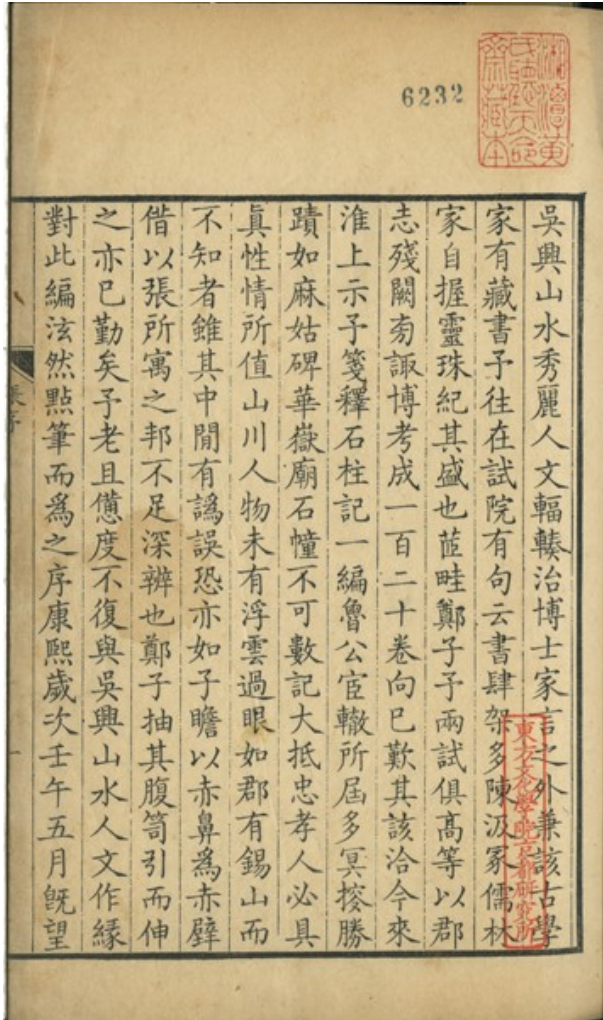 6232
湘潭黃
氏聽天命
齋藏本
吳興山水秀麗人文輻輳治博士家言之外兼該古學
家有藏書予往在試院有句云書肆架多陳汲冢儒林
家自握靈珠紀其盛也芷畦鄭子予兩試俱高等以郡
志殘闕旁諏博考成一百二十卷向巳歎其該洽今來
淮上示予箋釋石柱記一編魯公宦轍所屆多冥搜勝
蹟如麻姑碑華嶽廟石幢不可數記大抵忠孝人必具
眞性情所值山川人物未有浮雲過眼如郡有錫山而
不知者雖其中閒有譌誤恐亦如子瞻以赤鼻爲赤壁
借以張所寓之邦不足深辨也鄭子抽其腹笥引而伸
之亦巳勤矣予老且憊度不復與吳興山水人文作緣
對此編泫然點筆而爲之序康熙歲次壬午五月旣望
東方文化學院京都研究所
張序
一